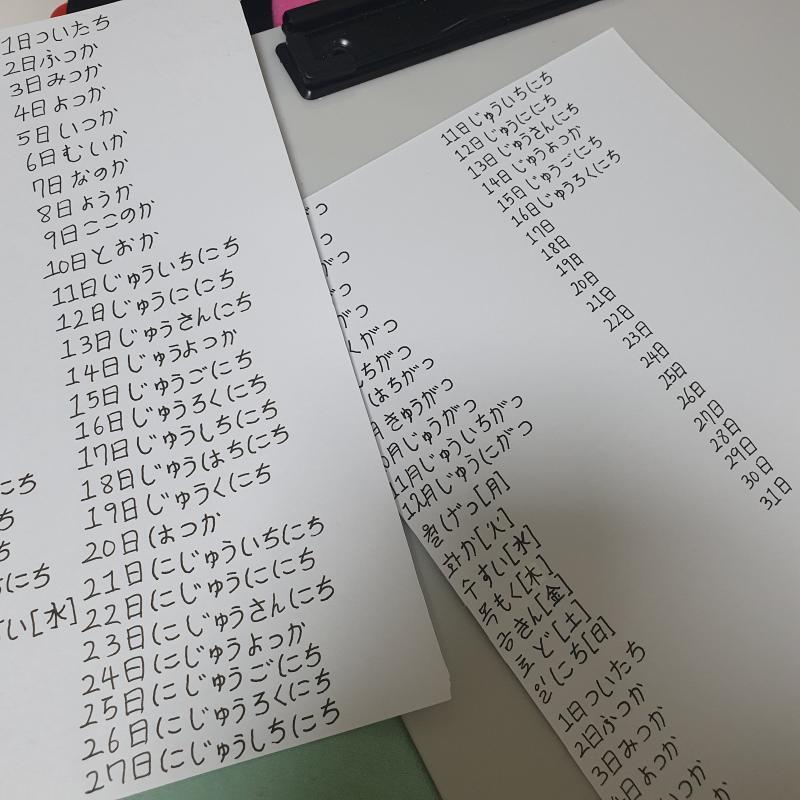 1日ついたち
2日ふつか
3日みつか
4日よつか
5日いつか
6日むいか
7日なのか
8日ようか
9日ここのか
10日とおか
11日じゅういちにち
12日じゅうににち
13日じゅうさんにち
14日じゅうよっか
15日じゅうごにち
16日じゅうろくにち
17日じゅうしちにち
18日じゅうはちにち
19日じゅうくにち
20日はつか
21日にじゅういちにち
22日にじゅうににち
23日にじゅうさんにち
24日にじゅうよっか
25日にじゅうごにち
26日にじゅうろくにち
27日にじゅうしちにち
にち
ち
ち
にち
い[水]
がつ
つ
がつ
がつ
くがつ
ちがつ
はちがつ
月きゅうがつ
月じゅうがつ
11月じゅういちがつ
12月じゅうにがつ
월 げつ[月]
화 か[火]
수 すい[水]
목 もく[木]
금 きん[金]
토 ど[土]
일 にち[日]
1日ついたち
2日ふつか
3日みつか
4日よつか
いつか
か
11日じゅういちにち
12日じゅうににち
13日じゅうさんにち
14日じゅうよっか
15日じゅうごにち
16日じゅうろくにち
17日
18日
19日
20日
21日
22日
23日
24日
25日
26日
27日
28日
29日
30日
31日